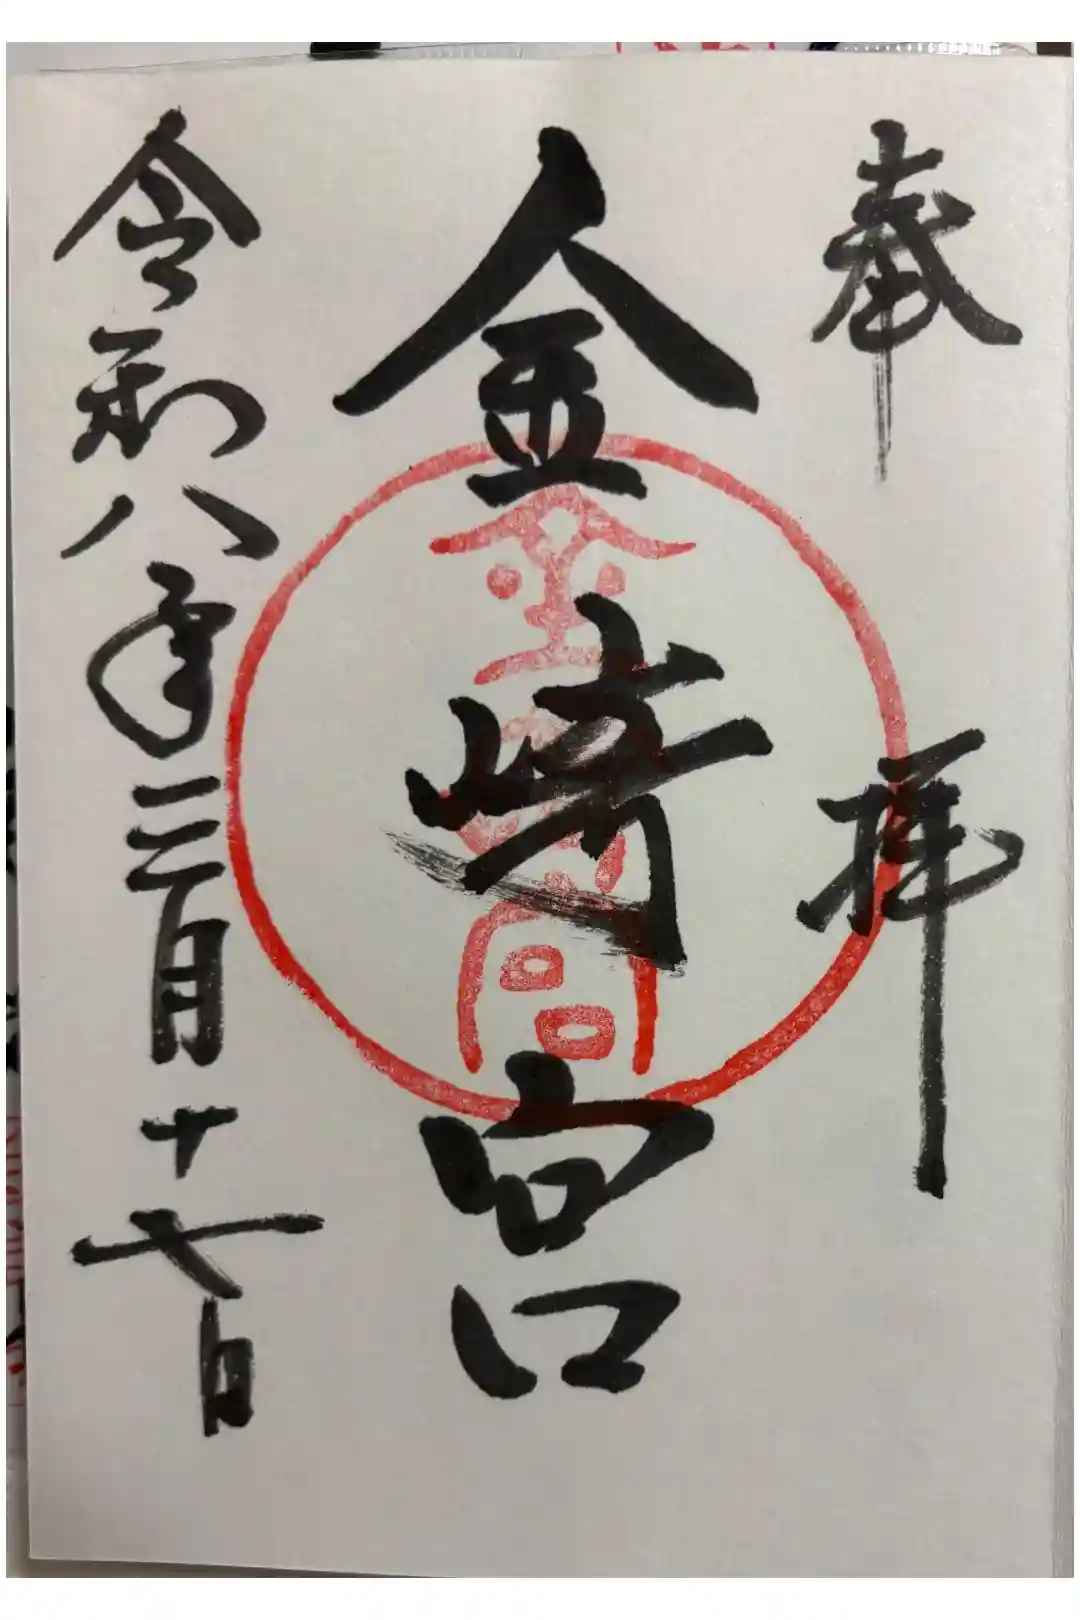 奉拝
金崎宮
金崎宮
令和八年三月十七日